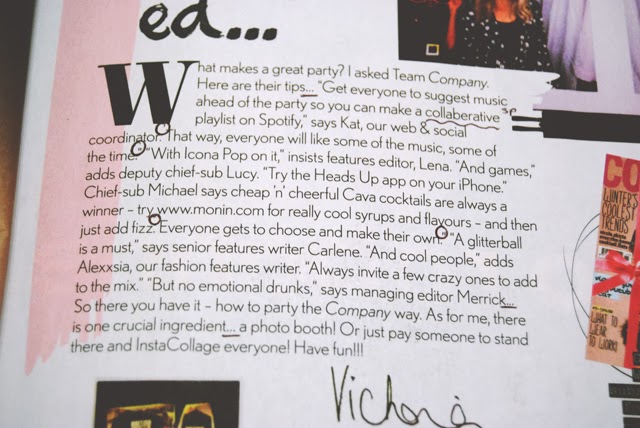 ed...
What makes a great party? I asked Team Company.
Here are their tips... "Get everyone to suggest music
ahead of the party so you can make a collaberative sp
playlist on Spotify," says Kat, our web & social
coordinator. That way, everyone will like some of the music, some of
the time." "With Icona Pop on it," insists features editor, Lena. "And games,"
adds deputy chief-sub Lucy. "Try the Heads Up app on your iPhone."
Chief-sub Michael says cheap 'n' cheerful Cava cocktails are always a
winner – try www.monin.com for really cool syrups and flavours – and then
just add fizz. Everyone gets to choose and make their own." "A glitterball
is a must," says senior features writer Carlene. "And cool people," adds
Alexxsia, our fashion features writer. "Always invite a few crazy ones to add
to the mix." "But no emotional drunks," says managing editor Merrick...
So there you have it – how to party the Company way. As for me, there
is one crucial ingredient... a photo booth! Or just pay someone to stand
there and InstaCollage everyone! Have fun!!!
Victoria
CO
WINTER'S
COOLEST
TRENDS
WHAT TO
WEAR
TO WORK!